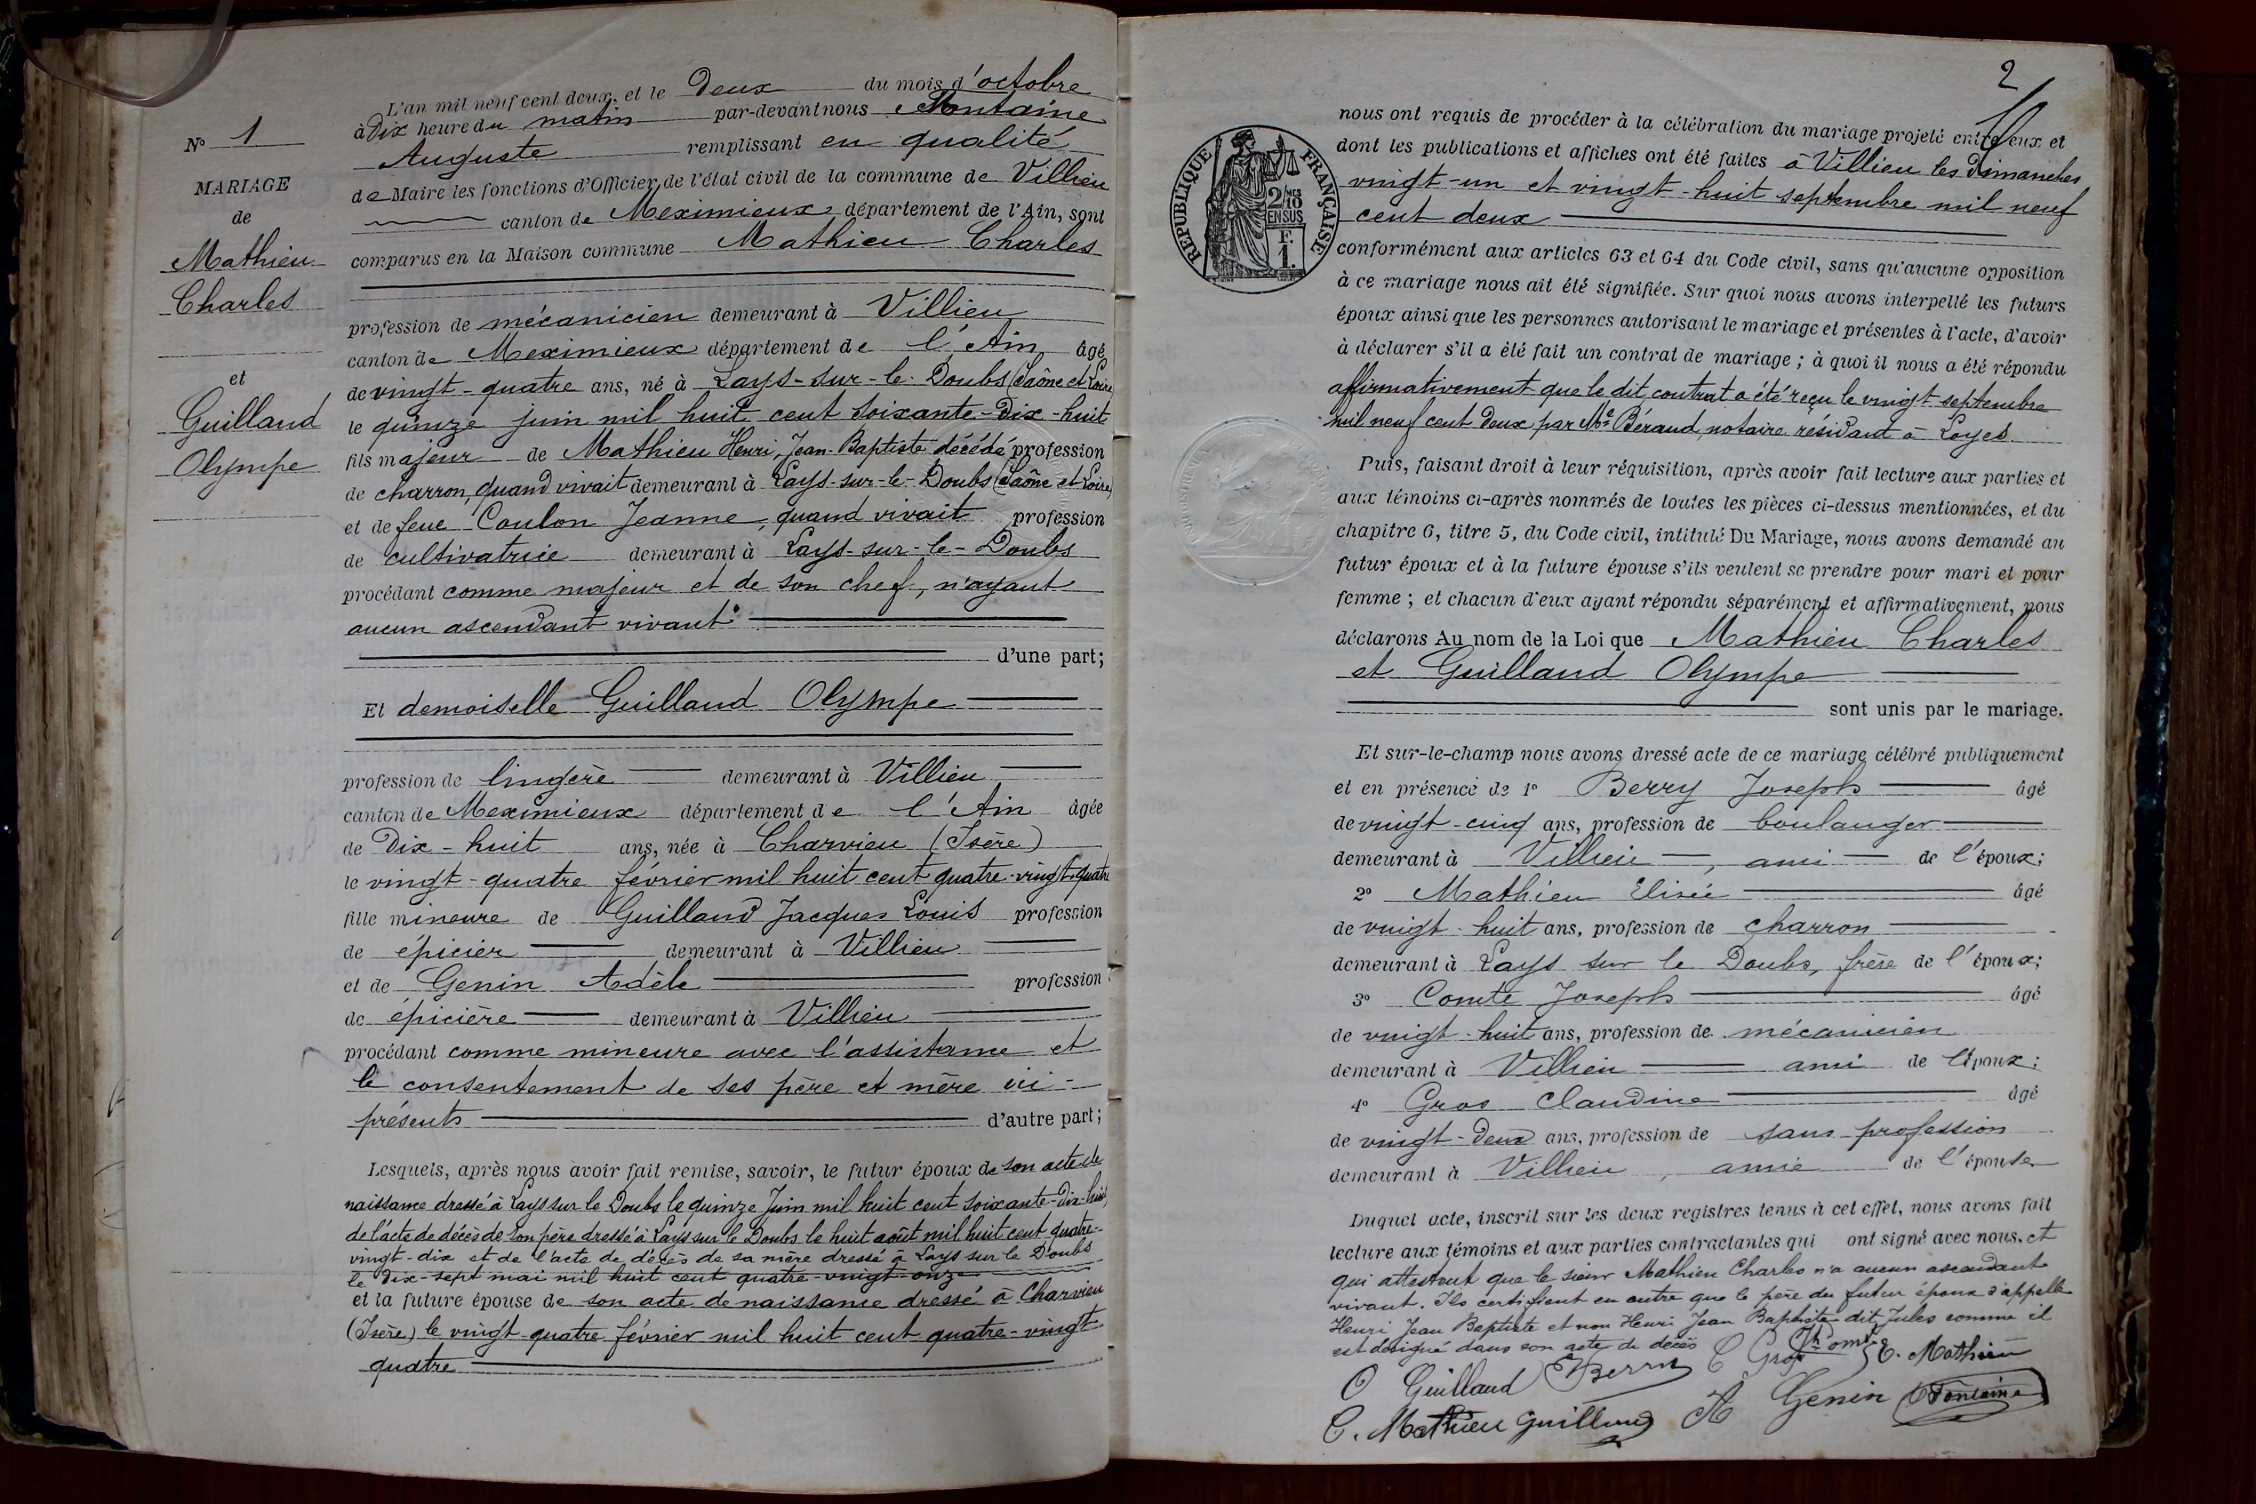 L'an mil neuf cent deux, et le Deux du mois d'octobre
à Dix heure du matin par-devant nous Montaine
Auguste remplissant en qualité
de Maire les fonctions d'Officier de l'état civil de la commune de Villieu
canton de Meximieux, département de l'Ain, sont
comparus en la Maison commune Mathieu Charles
N° 1
MARIAGE
de
Mathieu
Charles
et
Guilland
Olympe
profession de mécanicien demeurant à Villieu
canton de Meximieux département de l'Ain âgé
de vingt-quatre ans, né à Lays-sur-le-Doubs (Saône et Loire
le quinze juin mil huit cent soixante-Dix-huit
fils majeur de Mathieu Henri, Jean-Baptiste décédé profession
de charron, quand vivait demeurant à Lays-sur-le-Doubs (Saône et Loire)
et de feue Coulon Jeanne, quand vivait profession
de cultivatrice demeurant à Lays-sur-le-Doubs
procédant comme majeur et de son chef, n'ayant
aucun ascendant vivant
d'une part;
Et demoiselle Guilland Olympe
profession de lingère demeurant à Villieu
canton de Meximieux département de l'Ain âgée
de Dix-huit ans, née à Charvieu (Isère)
le vingt-quatre février mil huit cent quatre-vingt-quatre
fille mineure de Guilland Jacques Louis profession
de épicier demeurant à Villieu
et de Genin Adèle profession
de épicière demeurant à Villieu
procédant comme mineure avec l'assistance et
le consentement de ses père et mère ici-
présents d'autre part;
Lesquels, après nous avoir fait remise, savoir, le futur époux de son acte de
naissance dressé à Lays sur le Doubs le quinze Juin mil huit cent soixante-Dix-huit,
de l'acte de décès de son père dressé à Lays sur le Doubs le huit août mil huit cent quatre-
vingt-dix et de l'acte de décès de sa mère dressé à Lays sur le Doubs
le Dix-sept mai mil huit cent quatre-vingt-onze
et la future épouse de son acte de naissance dressé à Charvieu
(Isère) le vingt-quatre février mil huit cent quatre-vingt
quatre
2
nous ont requis de procéder à la célébration du mariage projeté entre eux et
dont les publications et affiches ont été faites à Villieu les Dimanches
vingt-un et vingt-huit septembre mil neuf
cent deux
RÉPUBLIQUE FRANÇAISE
2/10 MES
EN SUS
F.
1.
conformément aux articles 63 et 64 du Code civil, sans qu'aucune opposition
à ce mariage nous ait été signifiée. Sur quoi nous avons interpellé les futurs
époux ainsi que les personnes autorisant le mariage et présentes à l'acte, d'avoir
à déclarer s'il a été fait un contrat de mariage ; à quoi il nous a été répondu
affirmativement que le dit contrat a été reçu le vingt septembre
mil neuf cent Deux par Me Béraud, notaire résidant à Loyes
Puis, faisant droit à leur réquisition, après avoir fait lecture aux parties et
aux témoins ci-après nommés de toutes les pièces ci-dessus mentionnées, et du
chapitre 6, titre 5, du Code civil, intitulé Du Mariage, nous avons demandé au
futur époux et à la future épouse s'ils veulent se prendre pour mari et pour
femme ; et chacun d'eux ayant répondu séparément et affirmativement, nous
déclarons Au nom de la Loi que Mathieu Charles
et Guilland Olympe
sont unis par le mariage.
Et sur-le-champ nous avons dressé acte de ce mariage célébré publiquement
et en présence de 1° Berry Joseph âgé
de vingt-cinq ans, profession de boulanger
demeurant à Villieu, ami de l'époux;
2° Mathieu Elisée âgé
de vingt-huit ans, profession de charron
demeurant à Lays sur le Doubs, frère de l'époux;
3° Comte Joseph âgé
de vingt-huit ans, profession de mécanicien
demeurant à Villieu ami de l'époux;
4° Gros Claudine âgé
de vingt-Deux ans, profession de sans profession
demeurant à Villieu, amie de l'épouse
Duquel acte, inscrit sur les deux registres tenus à cet effet, nous avons fait
lecture aux témoins et aux parties contractantes qui ont signé avec nous. et
qui attestent que le sieur Mathieu Charles n'a aucun ascendant
vivant. Ils certifient en outre que le père du futur époux s'appelle
Henri Jean Baptiste et non Henri Jean Baptiste dit Jules comme il
est désigné dans son acte de décès
O Guilland Berry C Gros Jh Comte E. Mathieu
C. Mathieu Guilland A Genin